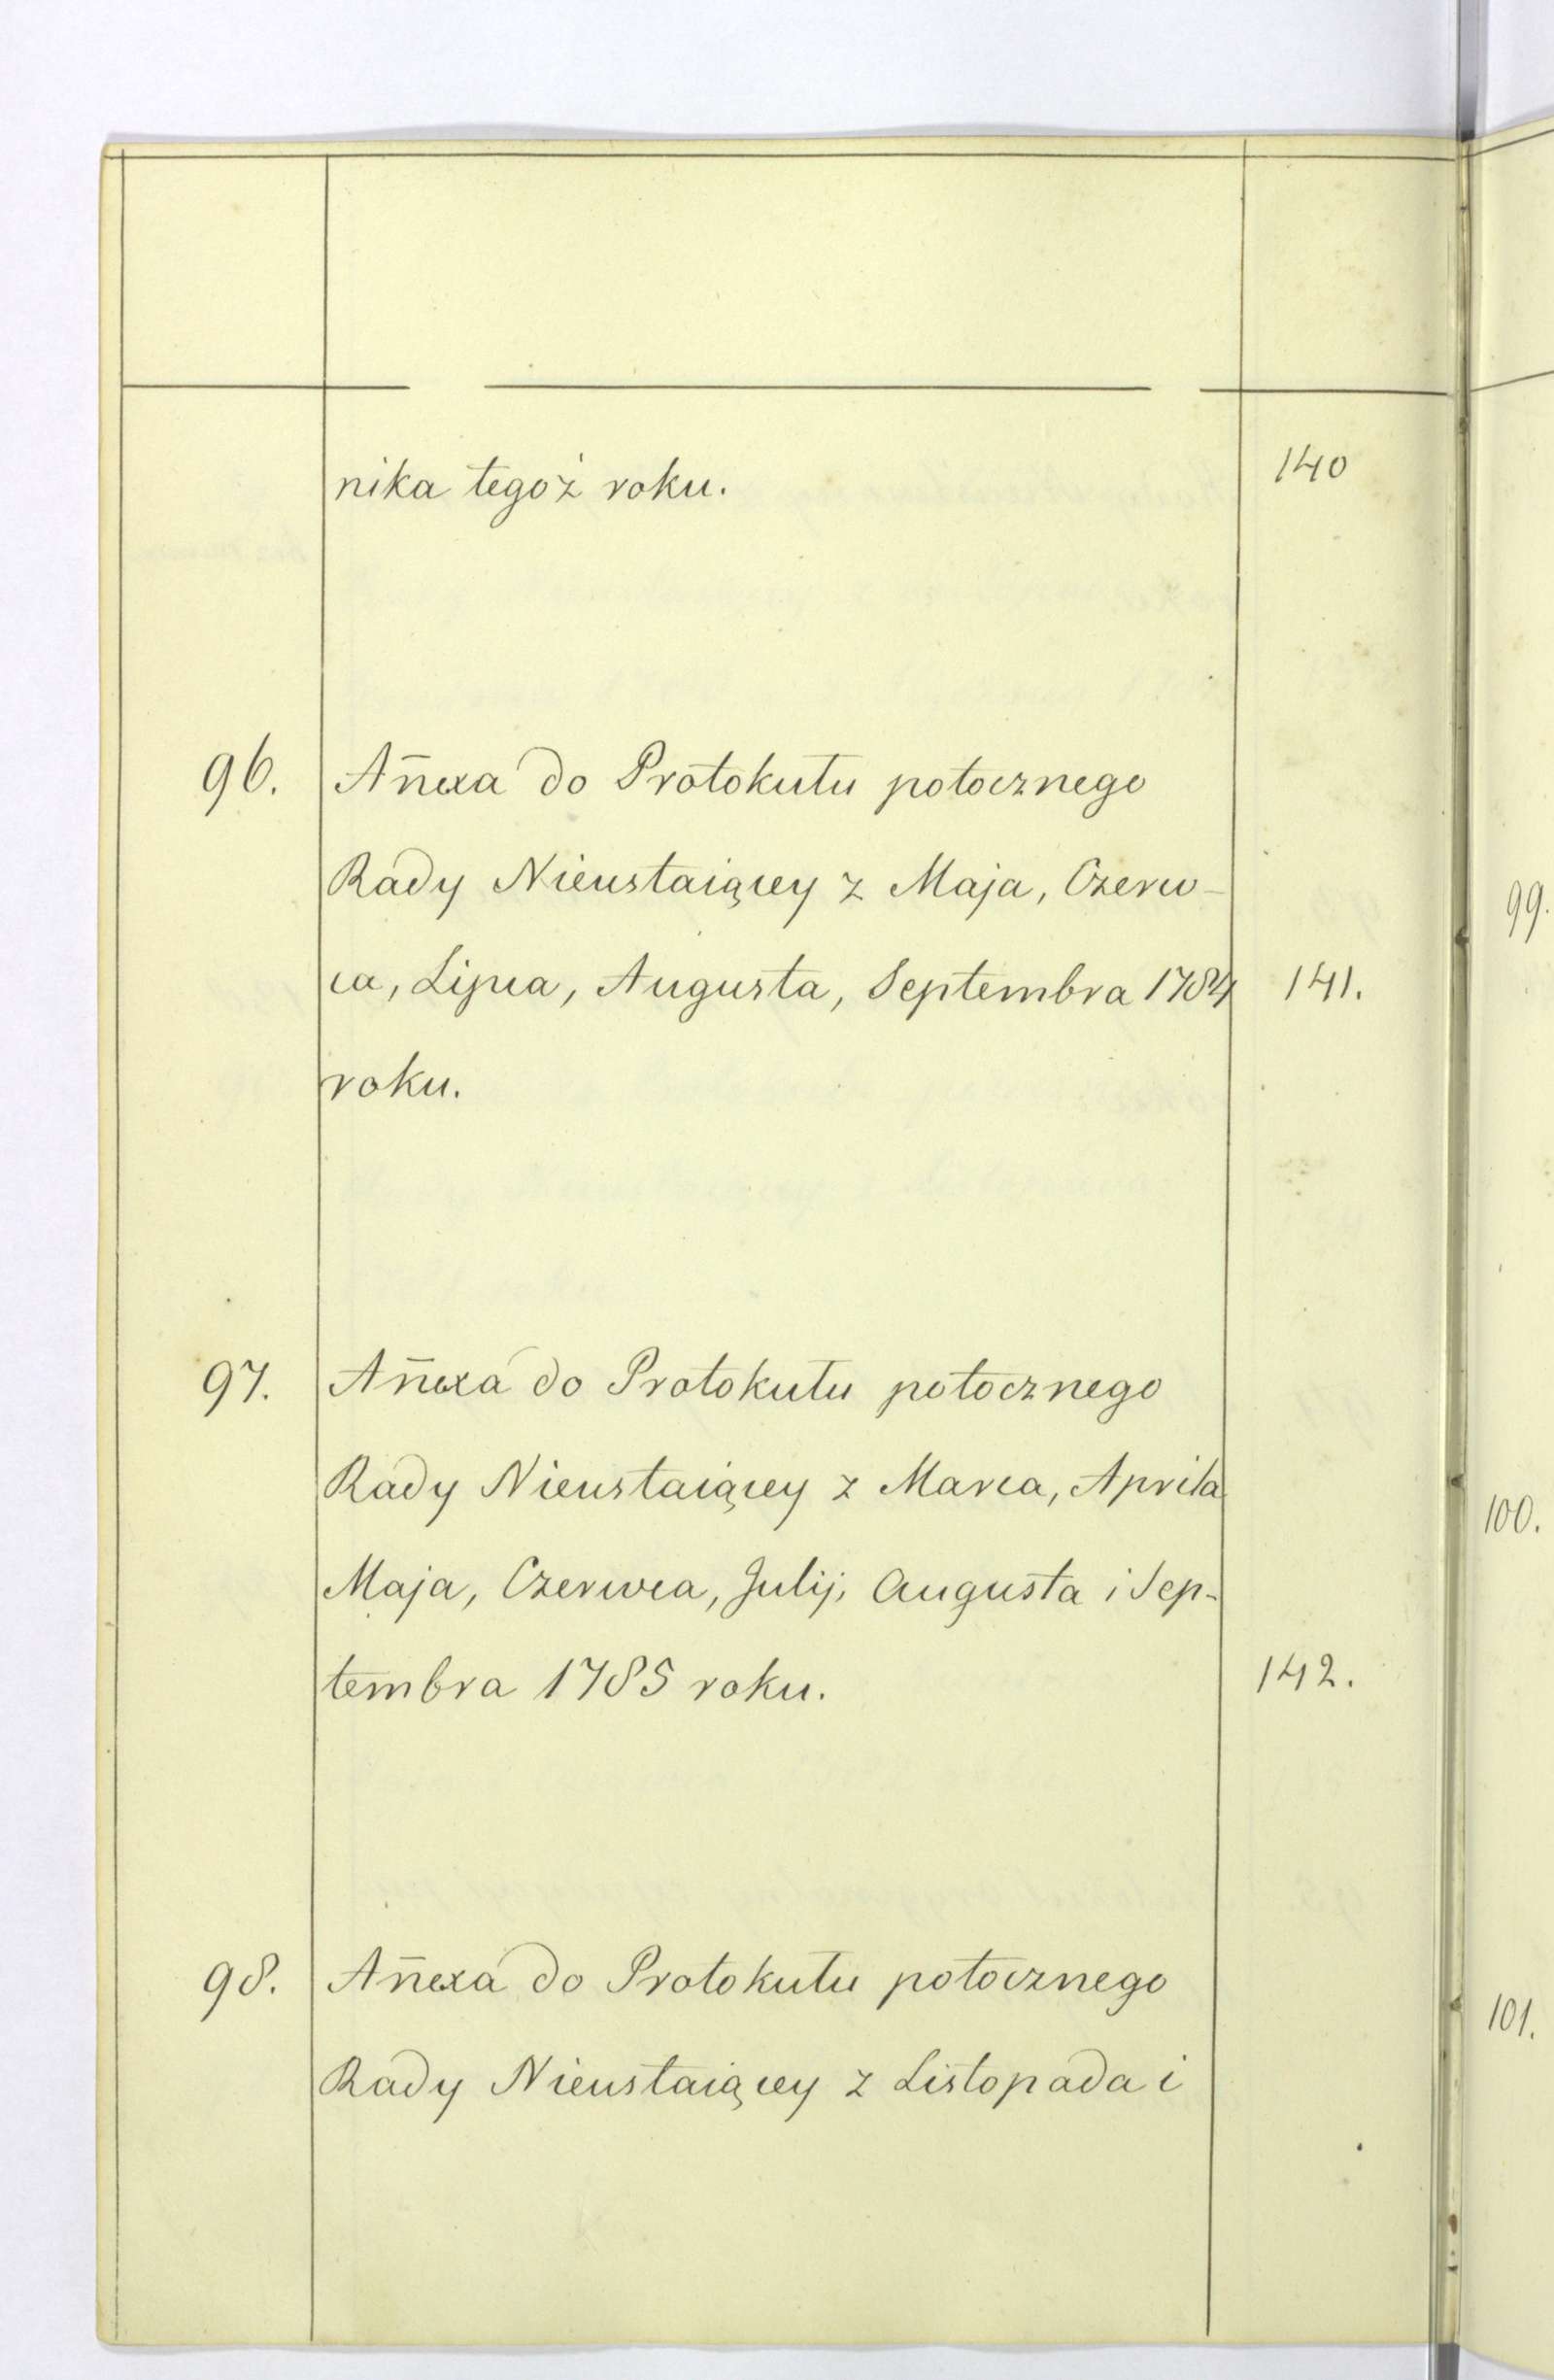 nika tegoż roku. 140
96. Añexa do Protokułu potocznego
Rady Nieustaiącey z Maja, Czerw-
ca, Lipca, Augusta, Septembra 1784 141.
roku.
97. Añexa do Protokułu potocznego
Rady Nieustaiącey z Marca, Aprila
Maja, Czerwca, Julij, Augusta i Sep-
tembra 1785 roku. 142.
98. Añexa do Protokułu potocznego
Rady Nieustaiącey z Listopada i
99.
100.
101.